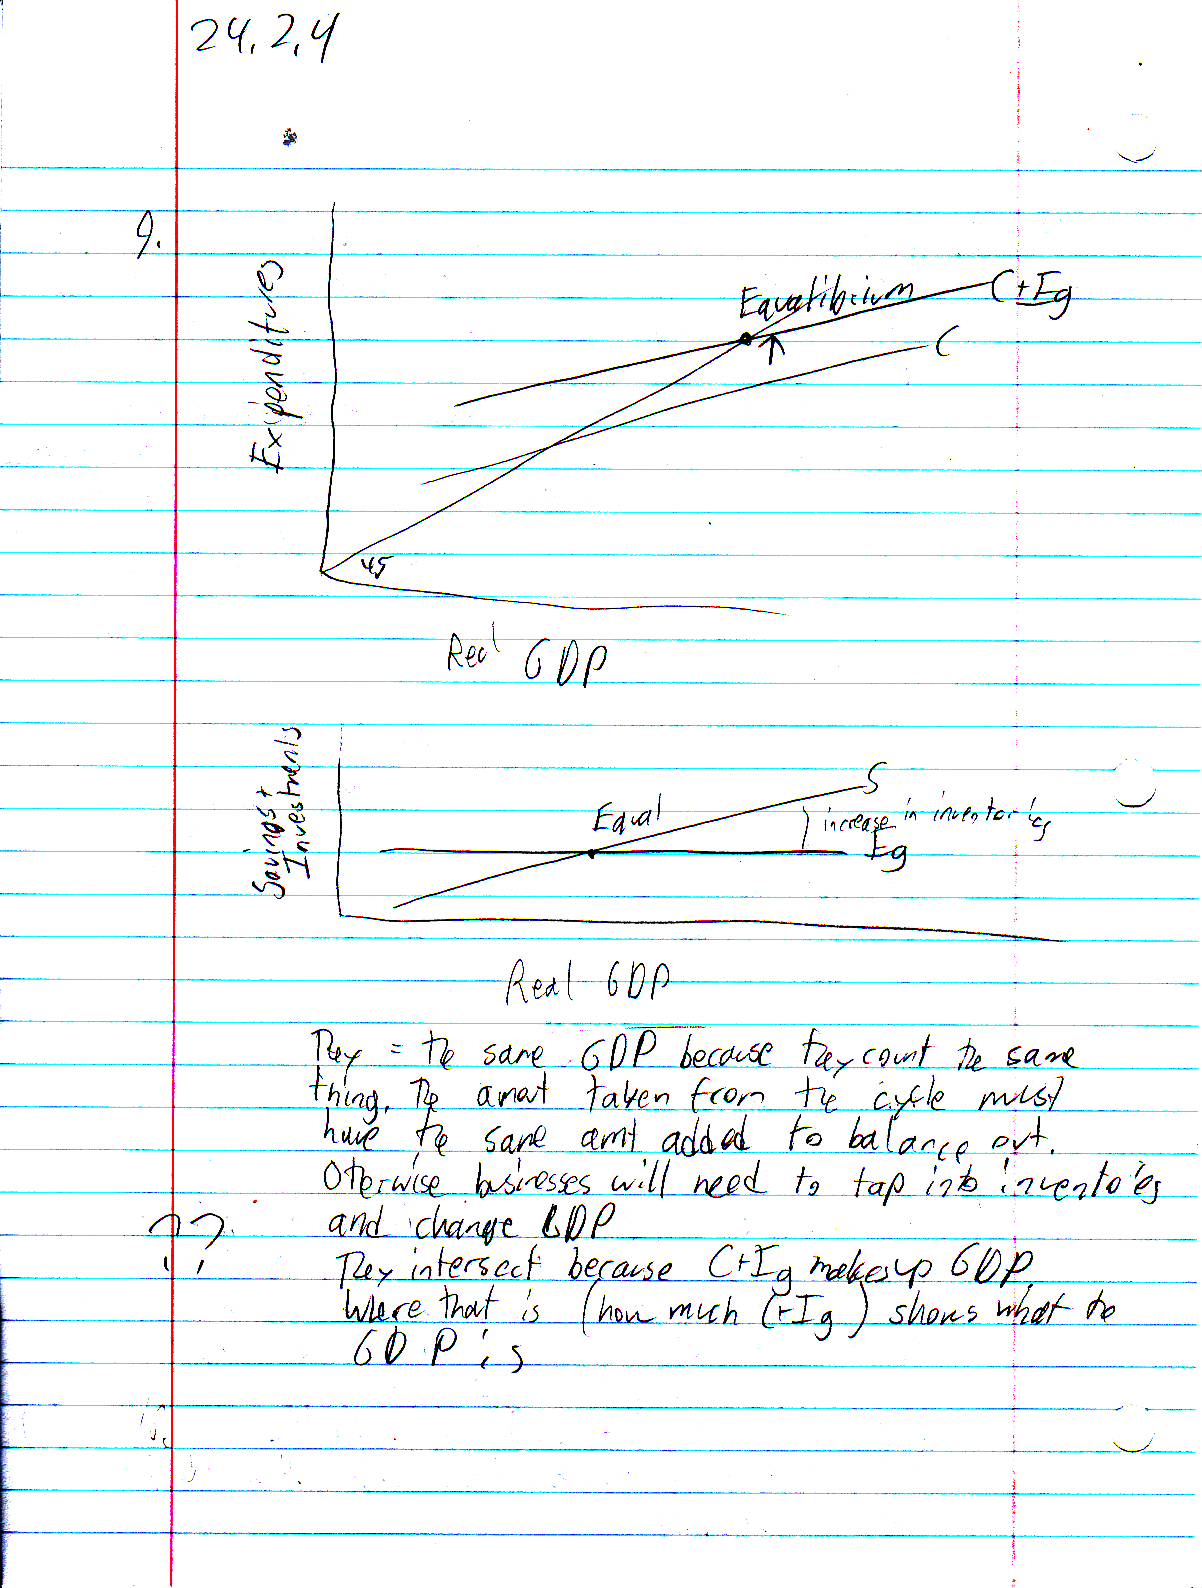 24.2,4
9.
Expenditures
Equalibrium
C+Ig
C
45
Real GDP
Savings +
Investments
S
Equal
increase in inventories
Ig
Real GDP
They = the same GDP because they count the same
thing. The amot taken from the cycle must
have the same amt added to balance out.
Otherwise businesses will need to tap into inventories
??
and change GDP
They intersect because C+Ig makes up GDP.
Where that is (how much C+Ig) shows what the
GDP is